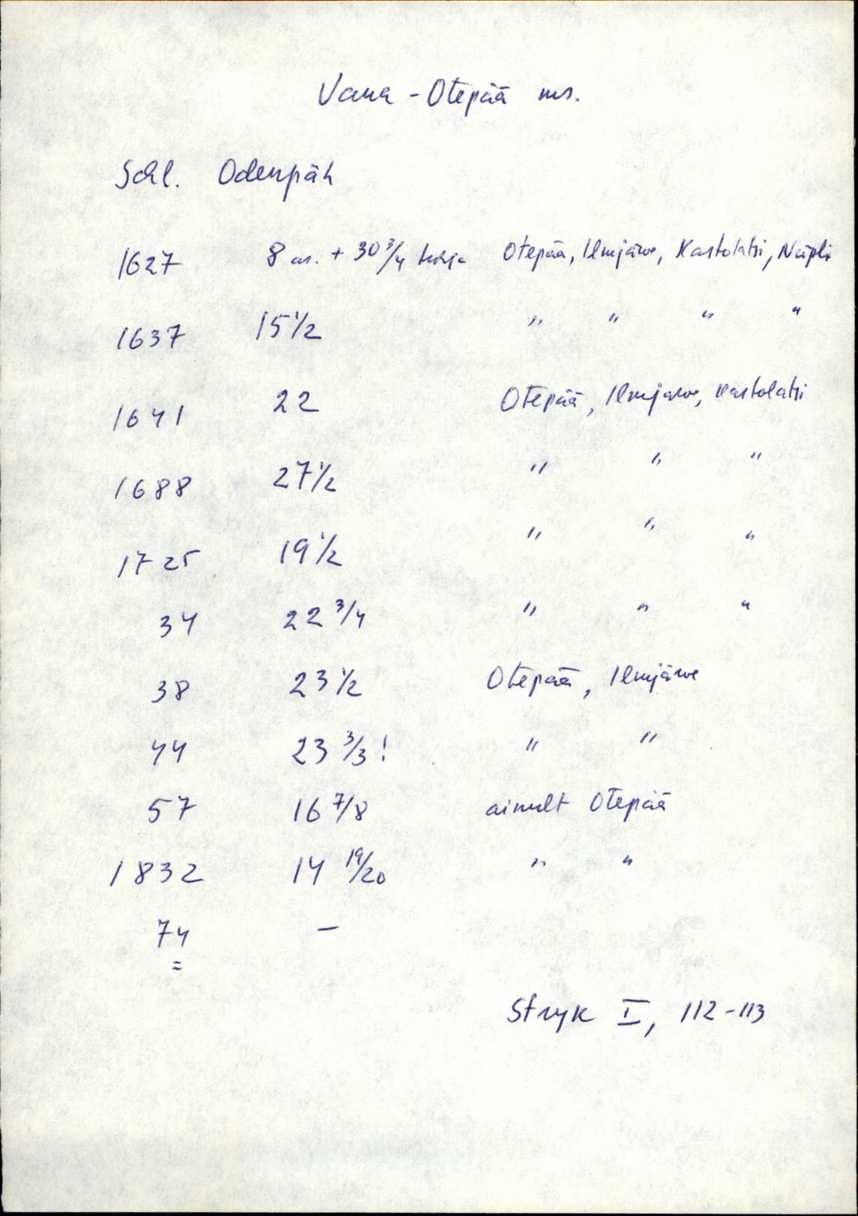 Vana-Otepää ms.
Schl. Odenpäh
1627 8 as. + 30 3/4 Otepää, Ilmjärve, Kastolatsi, Näpli
1637 15 1/2 " " " "
1641 22 Otepää, Ilmjärve, Kastolatsi
1688 27 1/2 " " "
1725 19 1/2 " " "
34 22 3/4 " " "
38 23 1/2 Otepää, Ilmjärve
44 23 3/3! " "
57 16 7/8 ainult Otepää
1832 14 19/20 " "
74 –
=
Stryk I, 112-113